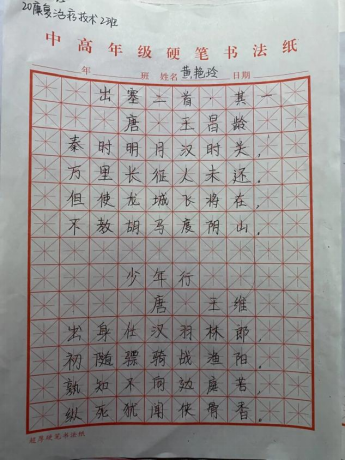 20康复治疗技术2班
中高年级硬笔书法纸
年 班 姓名 黄艳玲 日期
出塞二首·其一
唐 王昌龄
秦时明月汉时关,
万里长征人未还.
但使龙城飞将在,
不教胡马度阴山.
少年行
唐 王维
出身仕汉羽林郎,
初随骠骑战渔阳.
孰知不向边庭苦,
纵死犹闻侠骨香.
超厚硬笔书法纸